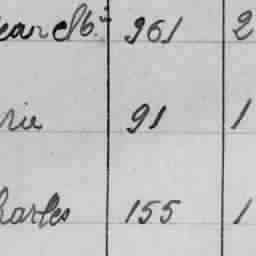 961 2
rie 91 1
harles 155 1